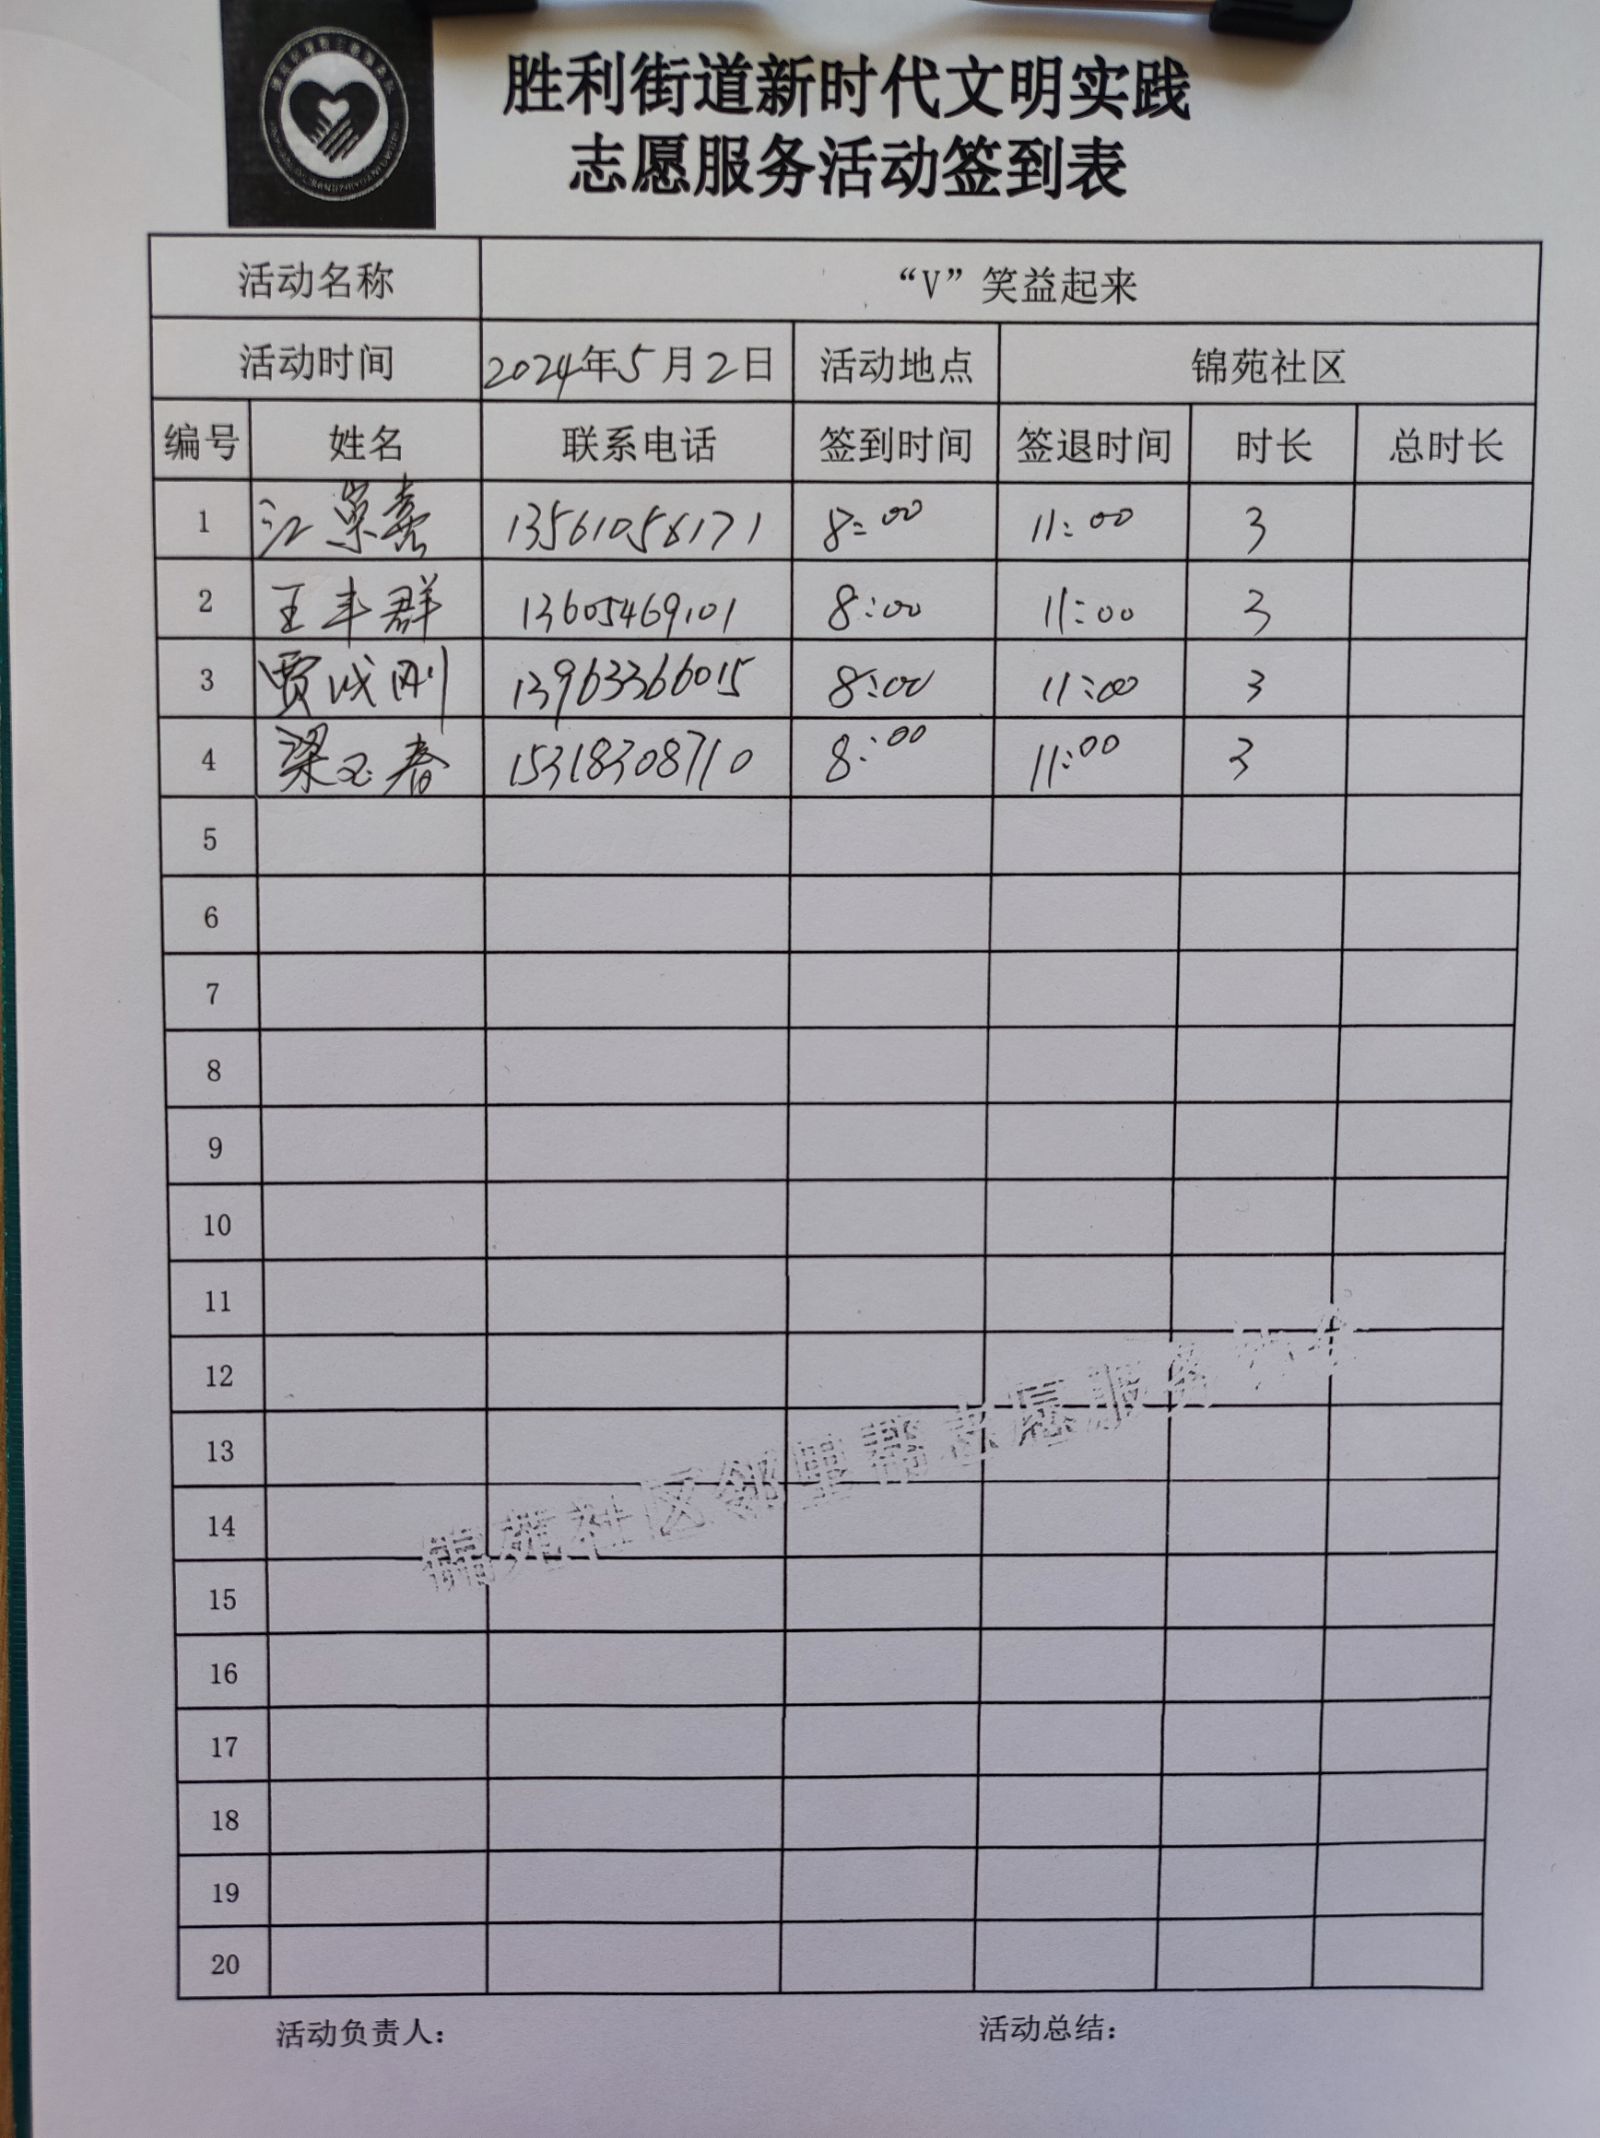 胜利街道新时代文明实践
志愿服务活动签到表
活动名称 “V”笑益起来
活动时间 2024年5月2日 活动地点 锦苑社区
编号 姓名 联系电话 签到时间 签退时间 时长 总时长
1 江崇熹 13561056171 8:00 11:00 3
2 王丰群 13605469101 8:00 11:00 3
3 贾成刚 13963366015 8:00 11:00 3
4 梁玉春 15318308710 8:00 11:00 3
5
6
7
8
9
10
11
12
13
14
15
16
17
18
19
20
锦苑社区邻里帮志愿服务
活动负责人： 活动总结：